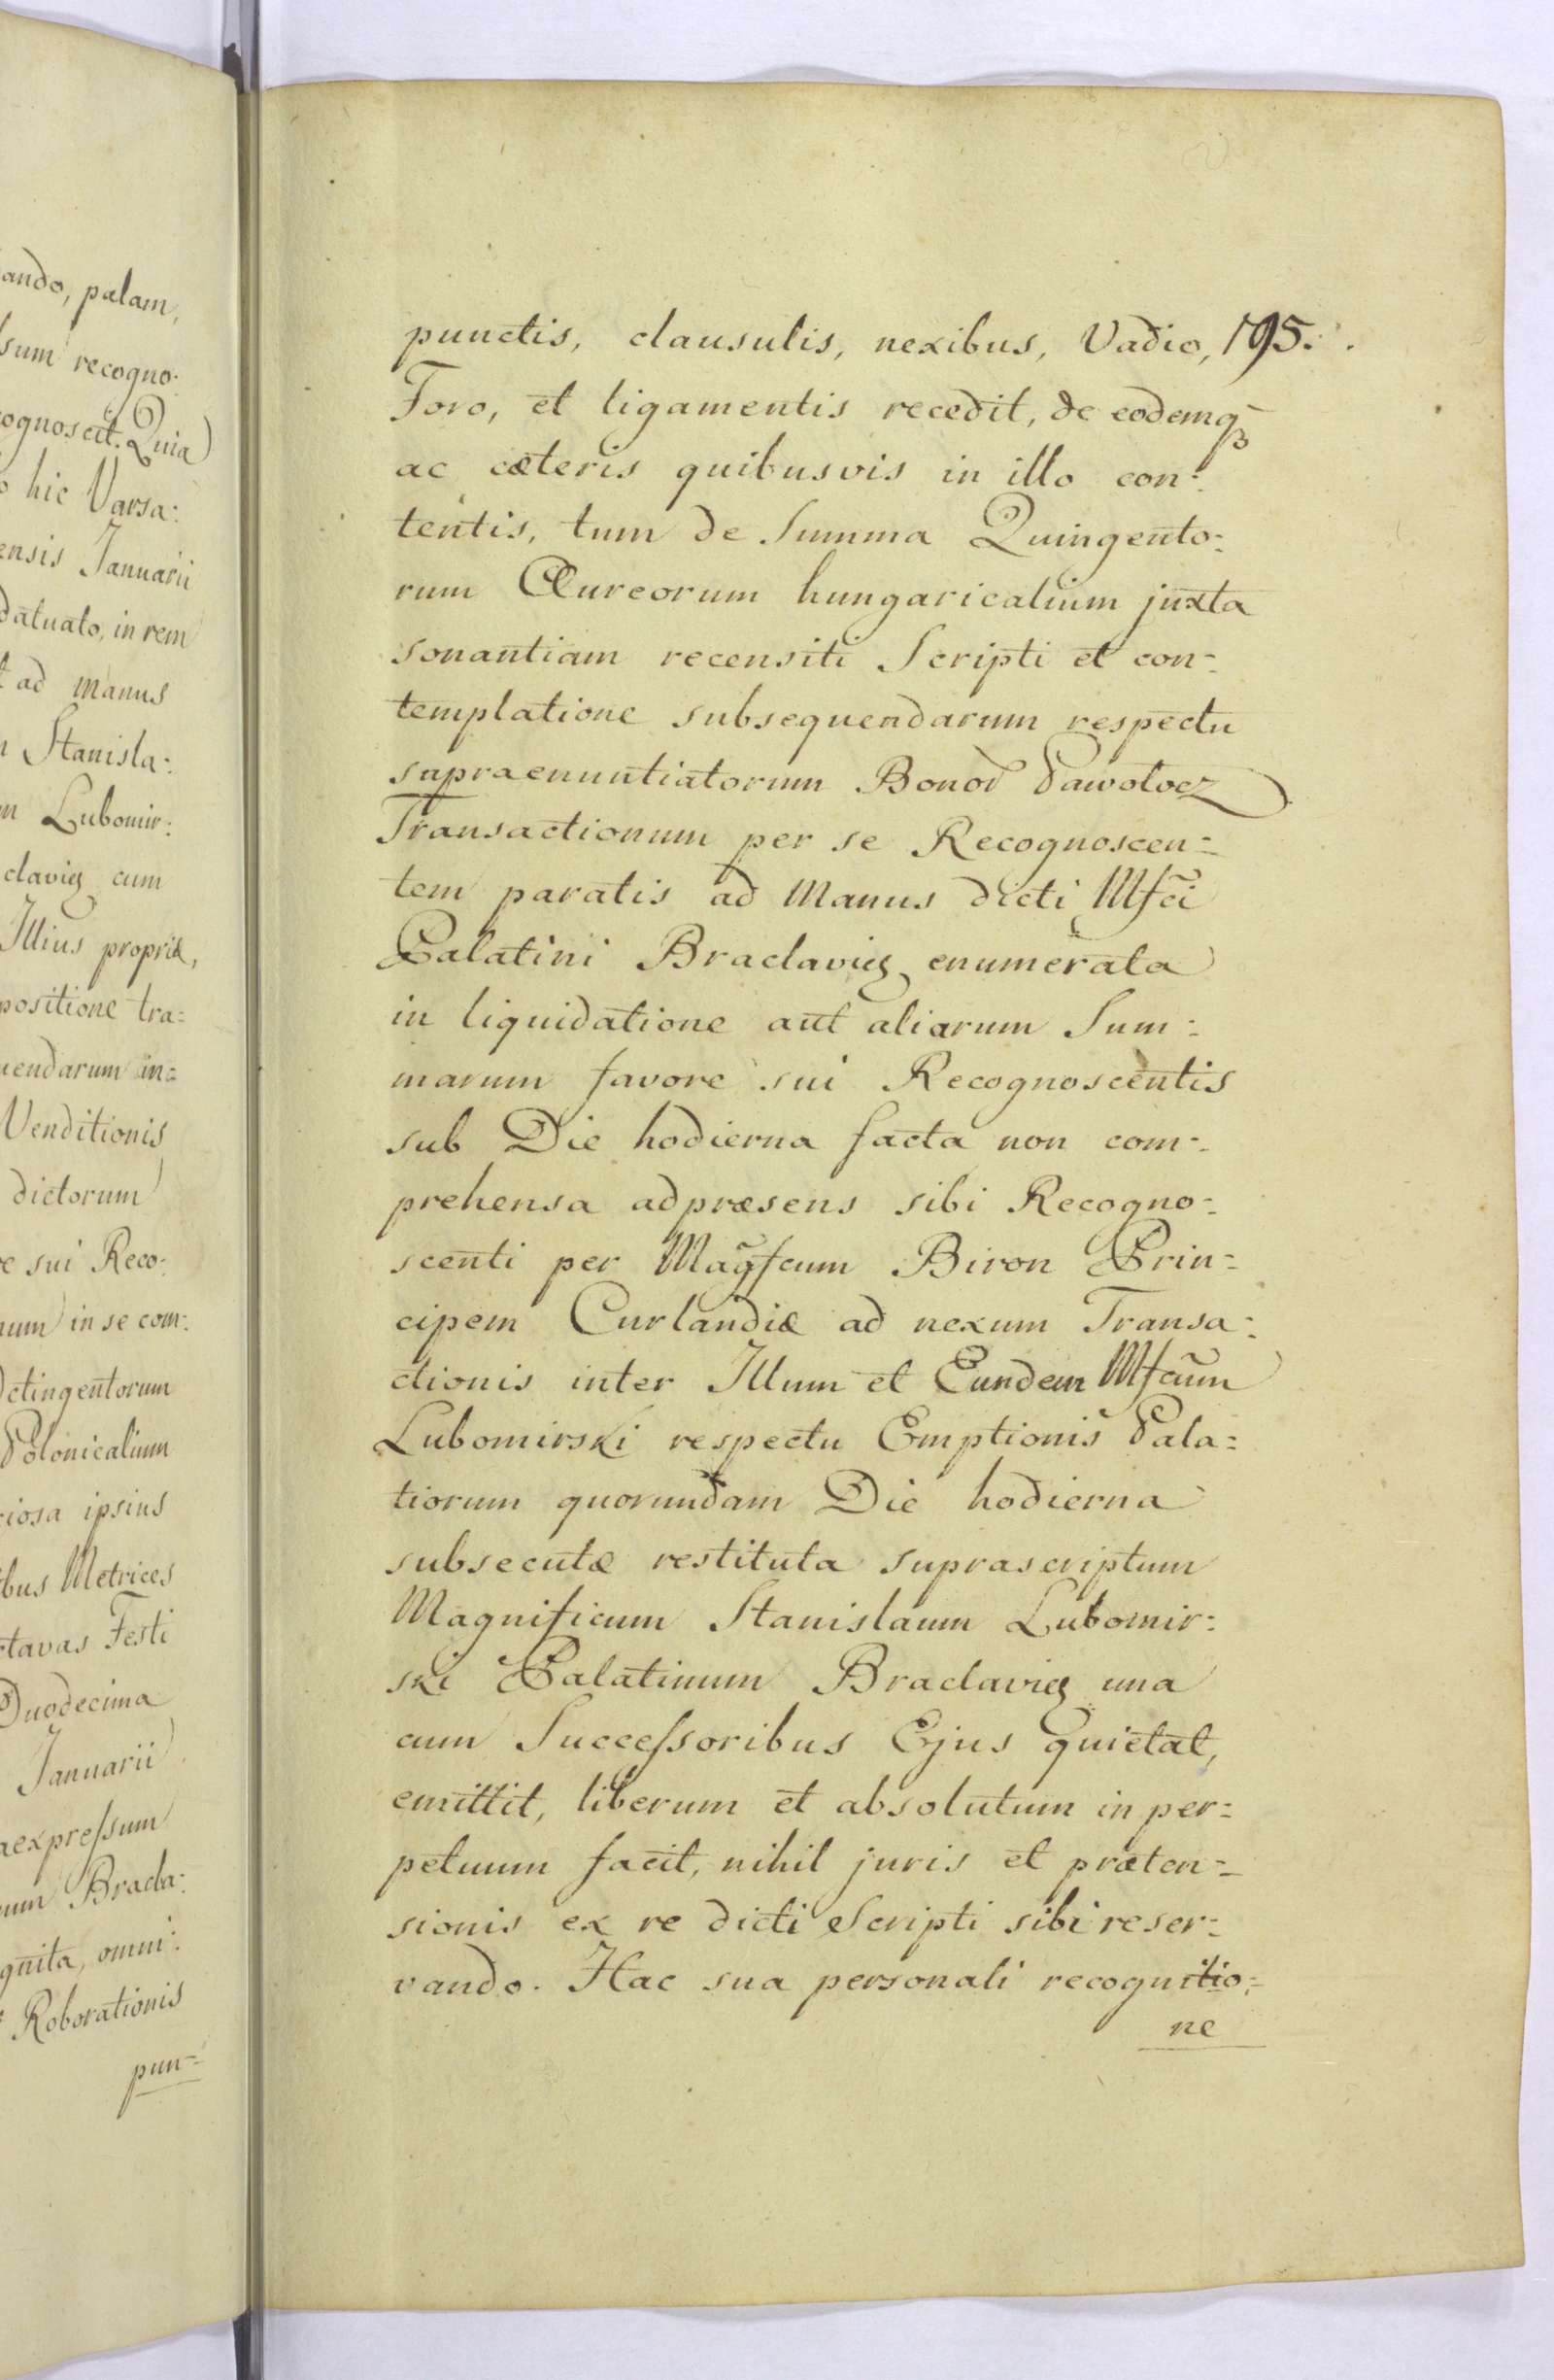 ando, palam,
sum recogno:
cognoscit. Quia
hic Varsa:
ensis Januarii
datuato, in rem
ad manus
Stanisla:
m Lubomir:
claviens cum
Illius propria,
positione tra=
uendarum in=
Venditionis
dictorum
sui Reco:
num in se com:
ctingentorum
Polonicalium
ciosa ipsius
ibus Metrices
ctavas Festi
Duodecima
Januarii
aexpressum
num Bracla:
gnita, omni:
Roborationis
pun=
punctis, clausulis, nexibus, Vadio, 195.
Foro, et ligamentis recedit, de eodemq̃
ac cæteris quibusvis in illo con:
tentis, tum de Summa Quingento:
rum Aureorum hungaricalium juxta
sonantiam recensiti Scripti et con:
templatione subsequendarum respectu
supraenuntiatorum Bonor̃ Pawolocz
Transactionum per se Recognoscen=
tem paratis ad Manus dicti Mfci
Palatini Braclavieñ enumerata
in liquidatione aut aliarum Sum:
marum favore sui Recognoscentis
sub Die hodierna facta non com:
prehensa ad præsens sibi Recogno:
scenti per Magfcum Biron Prin=
cipem Curlandiæ ad nexum Transa:
ctionis inter Illum et Eundem Mfcum
Lubomirski respectu Emptionis Pala=
tiorum quorundam Die hodierna
subsecutæ restituta suprascriptum
Magnificum Stanislaum Lubomir:
ski Palatinum Braclavieñ una
cum Successoribus Ejus quietat,
emittit, liberum et absolutum in per=
petuum facit, nihil juris et præten=
sionis ex re dicti Scripti sibi reser=
vando. Hac sua personali recognitio=
ne